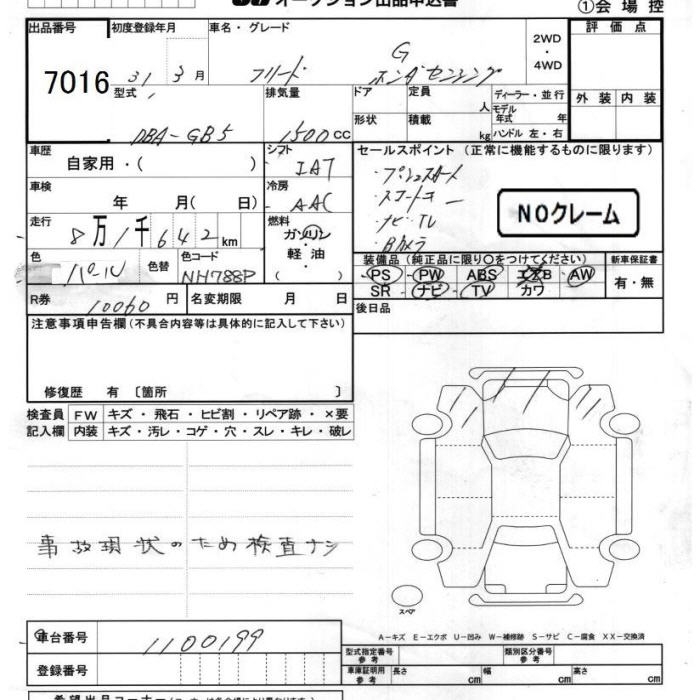 オークション出品申込書
①会場控
出品番号 初度登録年月 車名・グレード 2WD・4WD 評価点
7016 31 3月 フリード G ホンダセンシング
型式 排気量 ドア 定員 人 ディーラー・並行 外装 内装
DBA-GB5 1500cc 形状 積載 kg モデル年式 年
ハンドル 左・右
車歴 シフト セールスポイント (正常に機能するものに限ります)
自家用・( ) IAT ・プッシュスタート
車検 冷房 ・スマートキー
年 月( 日) AAC ・ナビ・TV
NOクレーム
走行 燃料 ・Bカメラ
8万1千642km ガソリン
軽・油
( )
色 色替 色コード 装備品 (純正品に限り○をつけてください) 新車保証書
パール NH788P PS・PW ABS エアB AW 有・無
SR・ナビ・TV カワ
R券 10060円 名変期限 月 日 後日品
注意事項申告欄(不具合内容等は具体的に記入して下さい)
修復歴 有 〔箇所 〕
検査員 FW キズ・飛石・ヒビ割・リペア跡・×要
記入欄 内装 キズ・汚レ・コゲ・穴・スレ・キレ・破レ
事故現状のため検査ナシ
スペア
A-キズ E-エクボ U-凹み W-補修跡 S-サビ C-腐食 XX-交換済
車台番号 1100199
型式指定番号 参考 類別区分番号 参考
登録番号 車庫証明用 参考 長さ cm 幅 cm 高さ cm
希望出品コーナー